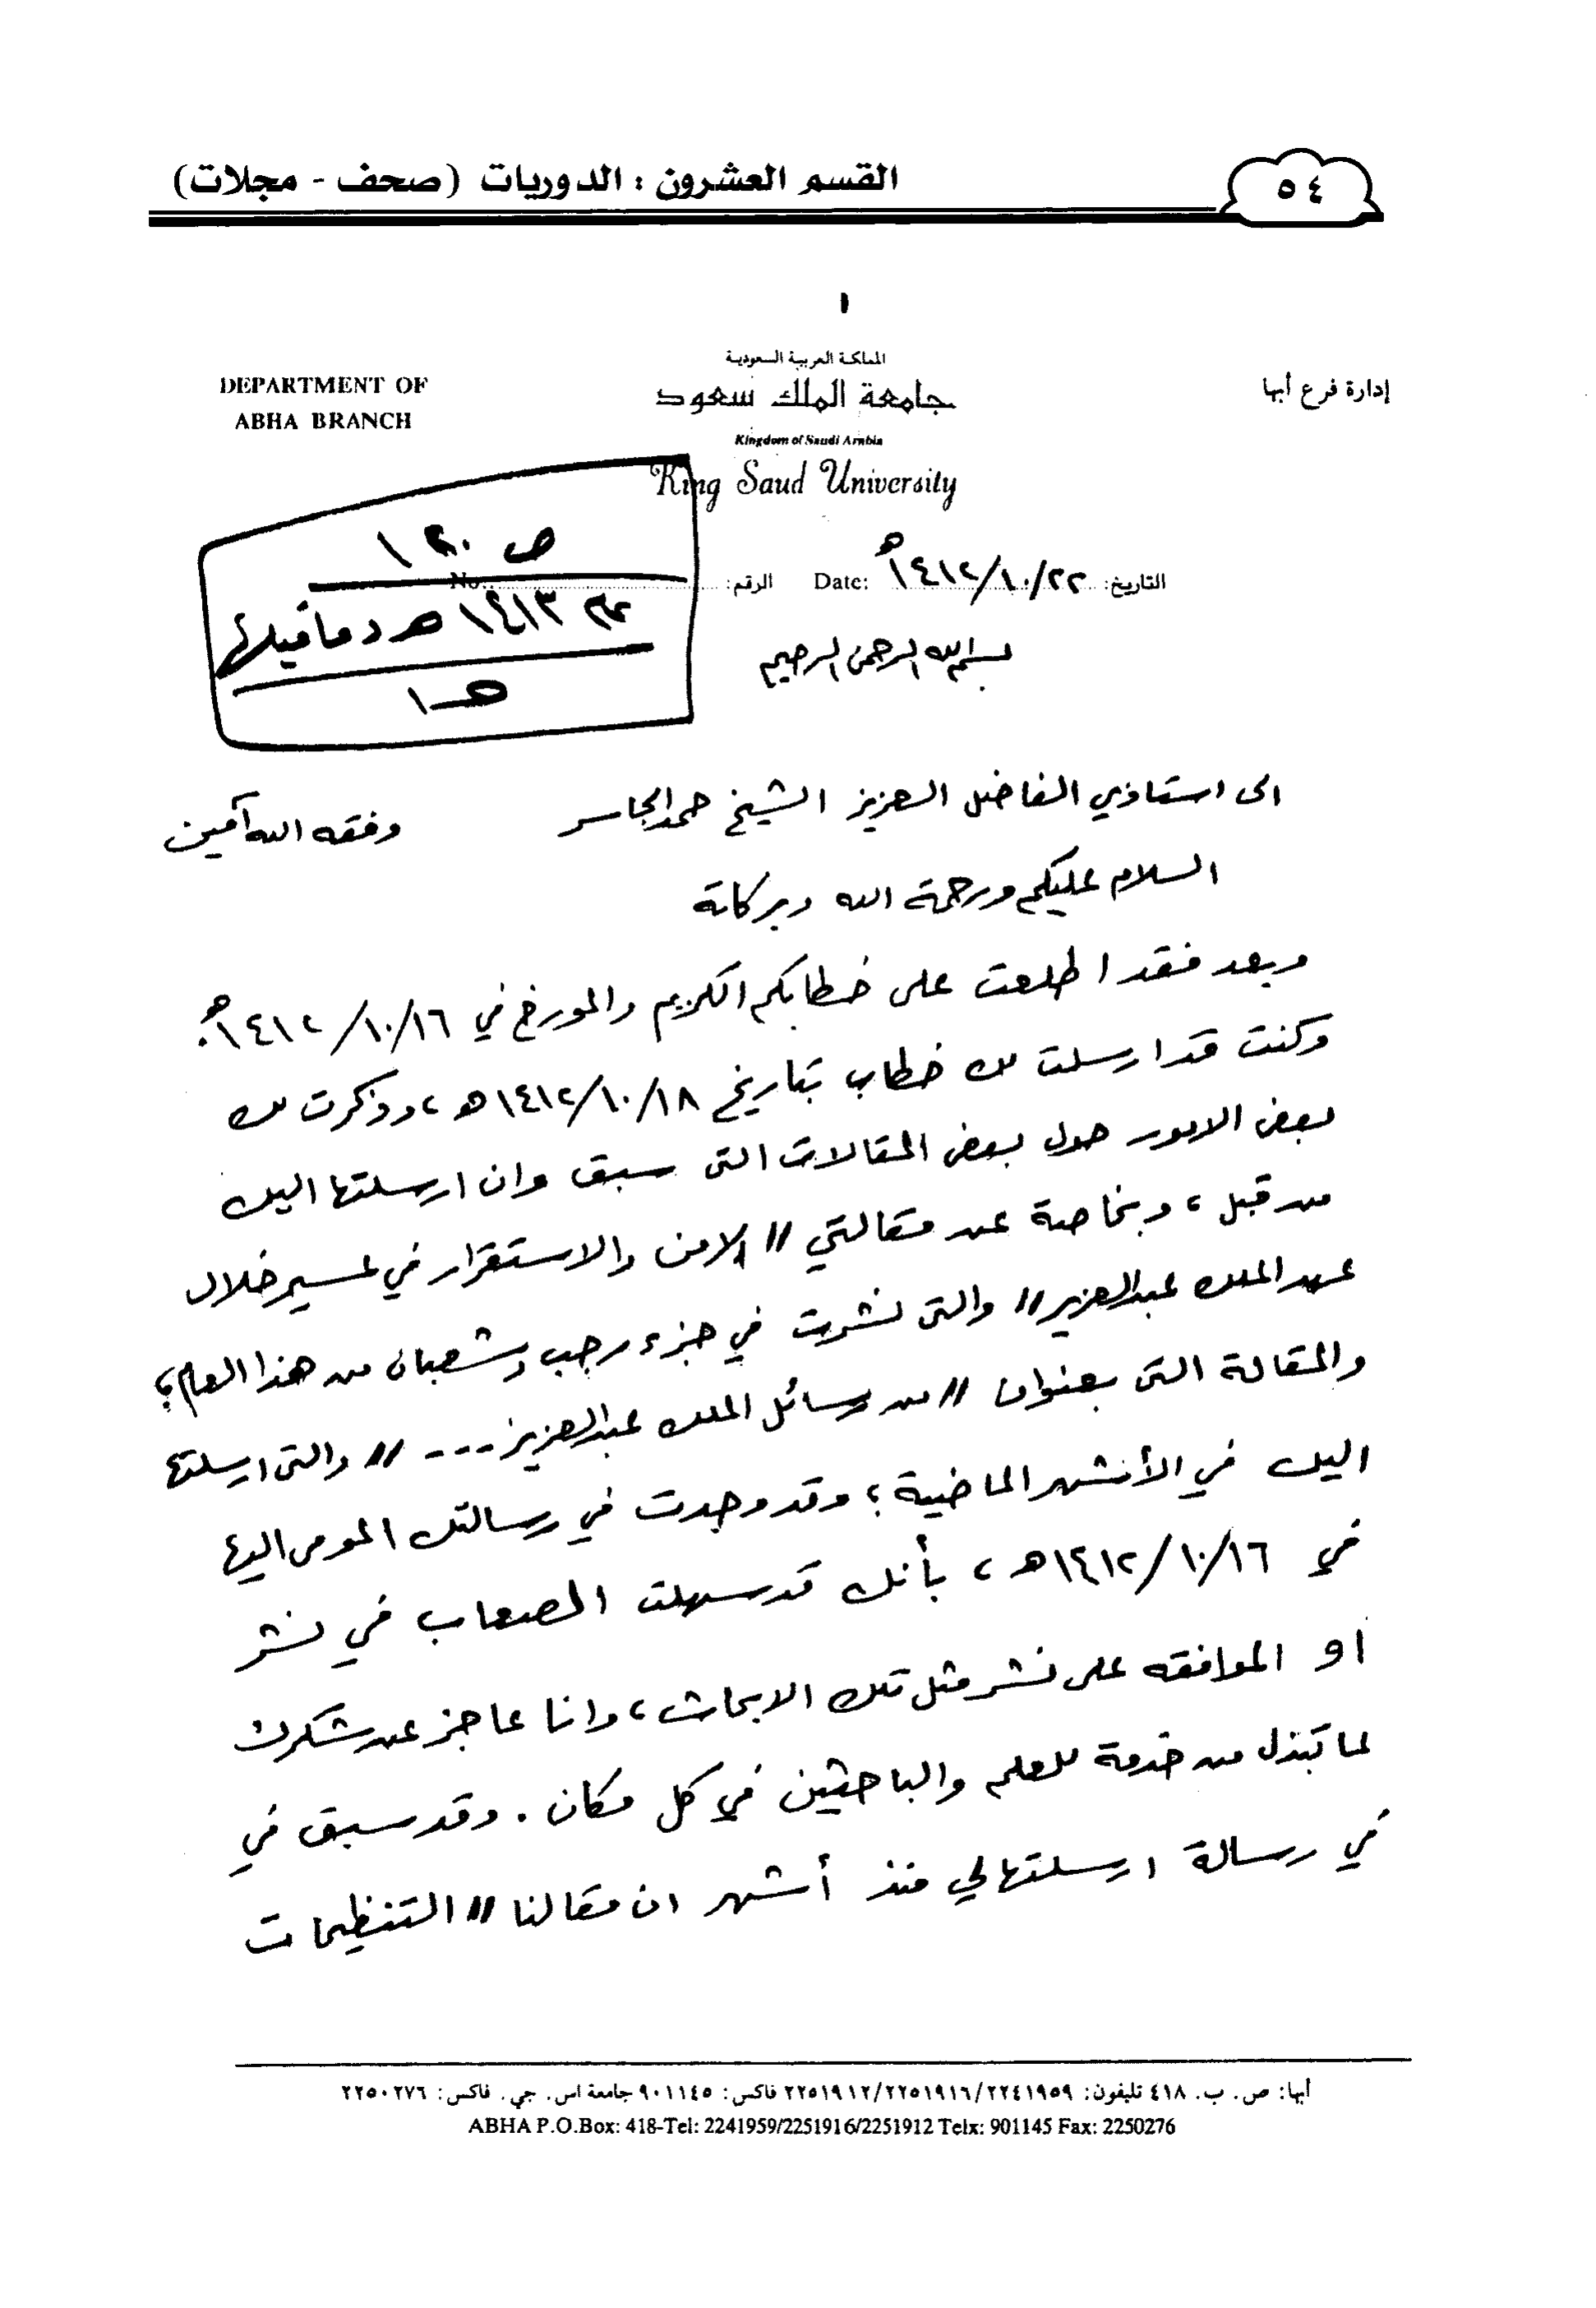 ٥٤
القسم العشرون : الدوريات (صحف - مجلات)
١
المملكة العربية السعودية
إدارة فرع أبها
جامعة الملك سعود
DEPARTMENT OF
ABHA BRANCH
Kingdom of Saudi Arabia
King Saud University
التاريخ: ١٤١٢/١٠/٢٢هـ Date:
الرقم: No.:
ص ١٢٠
١٤١٣ هـ وما قبلها
بسم الله الرحمن الرحيم
الى استاذي الفاضل العزيز الشيخ حمد الجاسر وفقه الله آمين
السلام عليكم ورحمة الله وبركاته
وبعد فقد اطلعت على خطابكم الكريم والمورخ في ١٤١٢/١٠/١٦هـ.
وكنت قد ارسلت لك خطاب بتاريخ ١٤١٢/١٠/١٨هـ، وذكرت لك
بعض الامور حول بعض المقالات التى سبق وان ارسلتها اليك
من قبل، وبخاصة عن مقالتي // الامن والاستقرار في عسير خلال
عهد الملك عبدالعزيز // والتى نشرت في جزء رجب وشعبان من هذا العام؛
والمقالة التى بعنوان // من رسائل الملك عبدالعزيز --- // والتى ارسلتها
اليك في الأشهر الماضية؛ وقد وجدت في رسالتك المومى اليها
في ١٤١٢/١٠/١٦هـ، بأنك قد سهلت الصعاب في نشر
او الموافقه على نشر مثل تلك الابحاث، وانا عاجز عن شكرك
لما تبذل من خدمة للعلم والباحثين في كل مكان. وقد سبق في
في رسالة ارسلتها لي منذ أشهر ان مقالنا // التنظيمات
أبها: ص. ب. ٤١٨ تليفون: ٢٢٤١٩٥٩/٢٢٥١٩١٦/٢٢٥١٩١٢ فاكس: ٩٠١١٤٥ جامعة اس. جي. فاكس: ٢٢٥٠٢٧٦
ABHA P.O.Box: 418-Tel: 2241959/2251916/2251912 Telx: 901145 Fax: 2250276